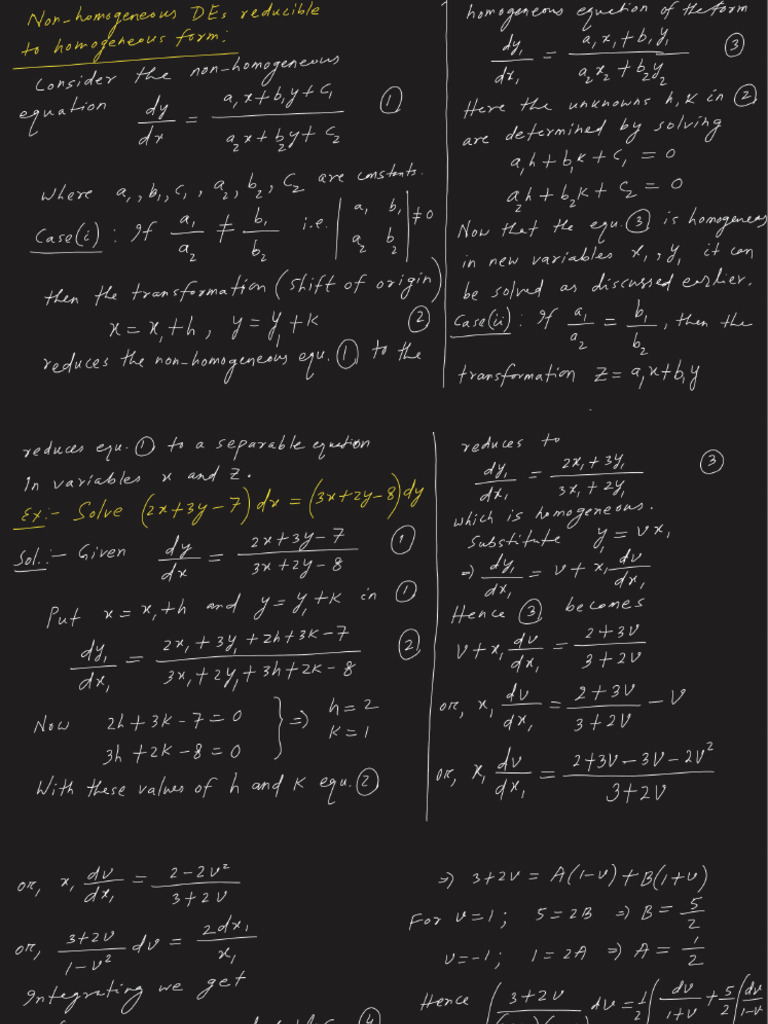 Non-homogeneous DEs reducible
to homogeneous form:
Consider the non-homogeneous
equation dy/dx = (a₁x+b₁y+c₁)/(a₂x+b₂y+c₂) ①
where a₁, b₁, c₁, a₂, b₂, c₂ are constants.
Case(i): If a₁/a₂ ≠ b₁/b₂ i.e. |a₁ b₁; a₂ b₂| ≠ 0
then the transformation (shift of origin)
x = x₁+h, y = y₁+k ②
reduces the non-homogeneous equ. ① to the
homogeneous equation of the form
dy₁/dx₁ = (a₁x₁+b₁y₁)/(a₂x₂+b₂y₂) ③
Here the unknowns h, k in ②
are determined by solving
a₁h+b₁k+c₁ = 0
a₂h+b₂k+c₂ = 0
Now that the equ. ③ is homogeneous
in new variables x₁, y₁ it can
be solved as discussed earlier.
Case(ii): If a₁/a₂ = b₁/b₂, then the
transformation z = a₁x+b₁y
reduces equ. ① to a separable equation
in variables x and z.
Ex:- Solve (2x+3y-7)dx = (3x+2y-8)dy
Sol.:- Given dy/dx = (2x+3y-7)/(3x+2y-8) ①
Put x = x₁+h and y = y₁+k in ①
dy₁/dx₁ = (2x₁+3y₁+2h+3k-7)/(3x₁+2y₁+3h+2k-8) ②
Now 2h+3k-7=0
3h+2k-8=0 } ⇒ h=2
k=1
With these values of h and k equ. ②
reduces to
dy₁/dx₁ = (2x₁+3y₁)/(3x₁+2y₁) ③
which is homogeneous.
Substitute y₁ = vx₁
⇒ dy₁/dx₁ = v+x₁ dv/dx₁
Hence ③ becomes
v+x₁ dv/dx₁ = (2+3v)/(3+2v)
or, x₁ dv/dx₁ = (2+3v)/(3+2v) - v
or, x₁ dv/dx₁ = (2+3v-3v-2v²)/(3+2v)
or, x₁ dv/dx₁ = (2-2v²)/(3+2v)
or, (3+2v)/(1-v²) dv = 2dx₁/x₁
Integrating we get
④
⇒ 3+2v = A(1-v)+B(1+v)
For v=1; 5=2B ⇒ B=5/2
v=-1; 1=2A ⇒ A=1/2
Hence ∫ 3+2v dv = 1/2 ∫ dv/(1+v) + 5/2 ∫ dv/(1-v)